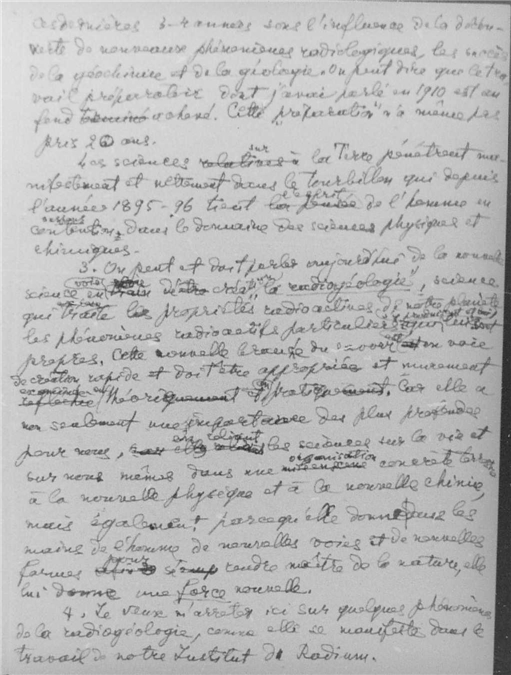 ces dernières 3-4 années sous l'influence de la décou-
verte de nouveaux phénomènes radiologiques, les succès
de la géochimie et de la géologie. On peut dire que le tra-
vail préparatoire dont j'avai parlé en 1910 est au
fond achevé. Cette "préparation" n'a même pas
pris 20 ans.
Les sciences sur la Terre pénètrent ma-
nifestement et nettement dans le tourbillon qui depuis
l'année 1895-96 tient l'esprit de l'homme en
dans le domaine des sciences physiques et
chimiques.
3. On peut et doit parler aujourd'hui de la nouvelle
science en voie de création "la radiogéologie", science
qui traite les propriétés radioactives de notre planète
les phénomènes radioactifs particuliers qui lui sont
propres. Cette nouvelle branche du savoir est en voie
de création rapide et doit être appropriée et murement
théoriquement et pratiquement. Car elle a
non seulement une importance des plus profondes
pour nous, en reliant les sciences sur la vie et
sur nous mêmes dans une organisation concrète
à la nouvelle physique et à la nouvelle chimie,
mais également, parcequ'elle donne dans les
mains de l'homme de nouvelles voies et de nouvelles
formes pour se rendre maître de la nature, elle
lui donne une force nouvelle.
4. Je veux m'arrêter ici sur quelques phénomènes
de la radiogéologie, comme elle se manifeste dans le
travail de notre Institut du Radium.